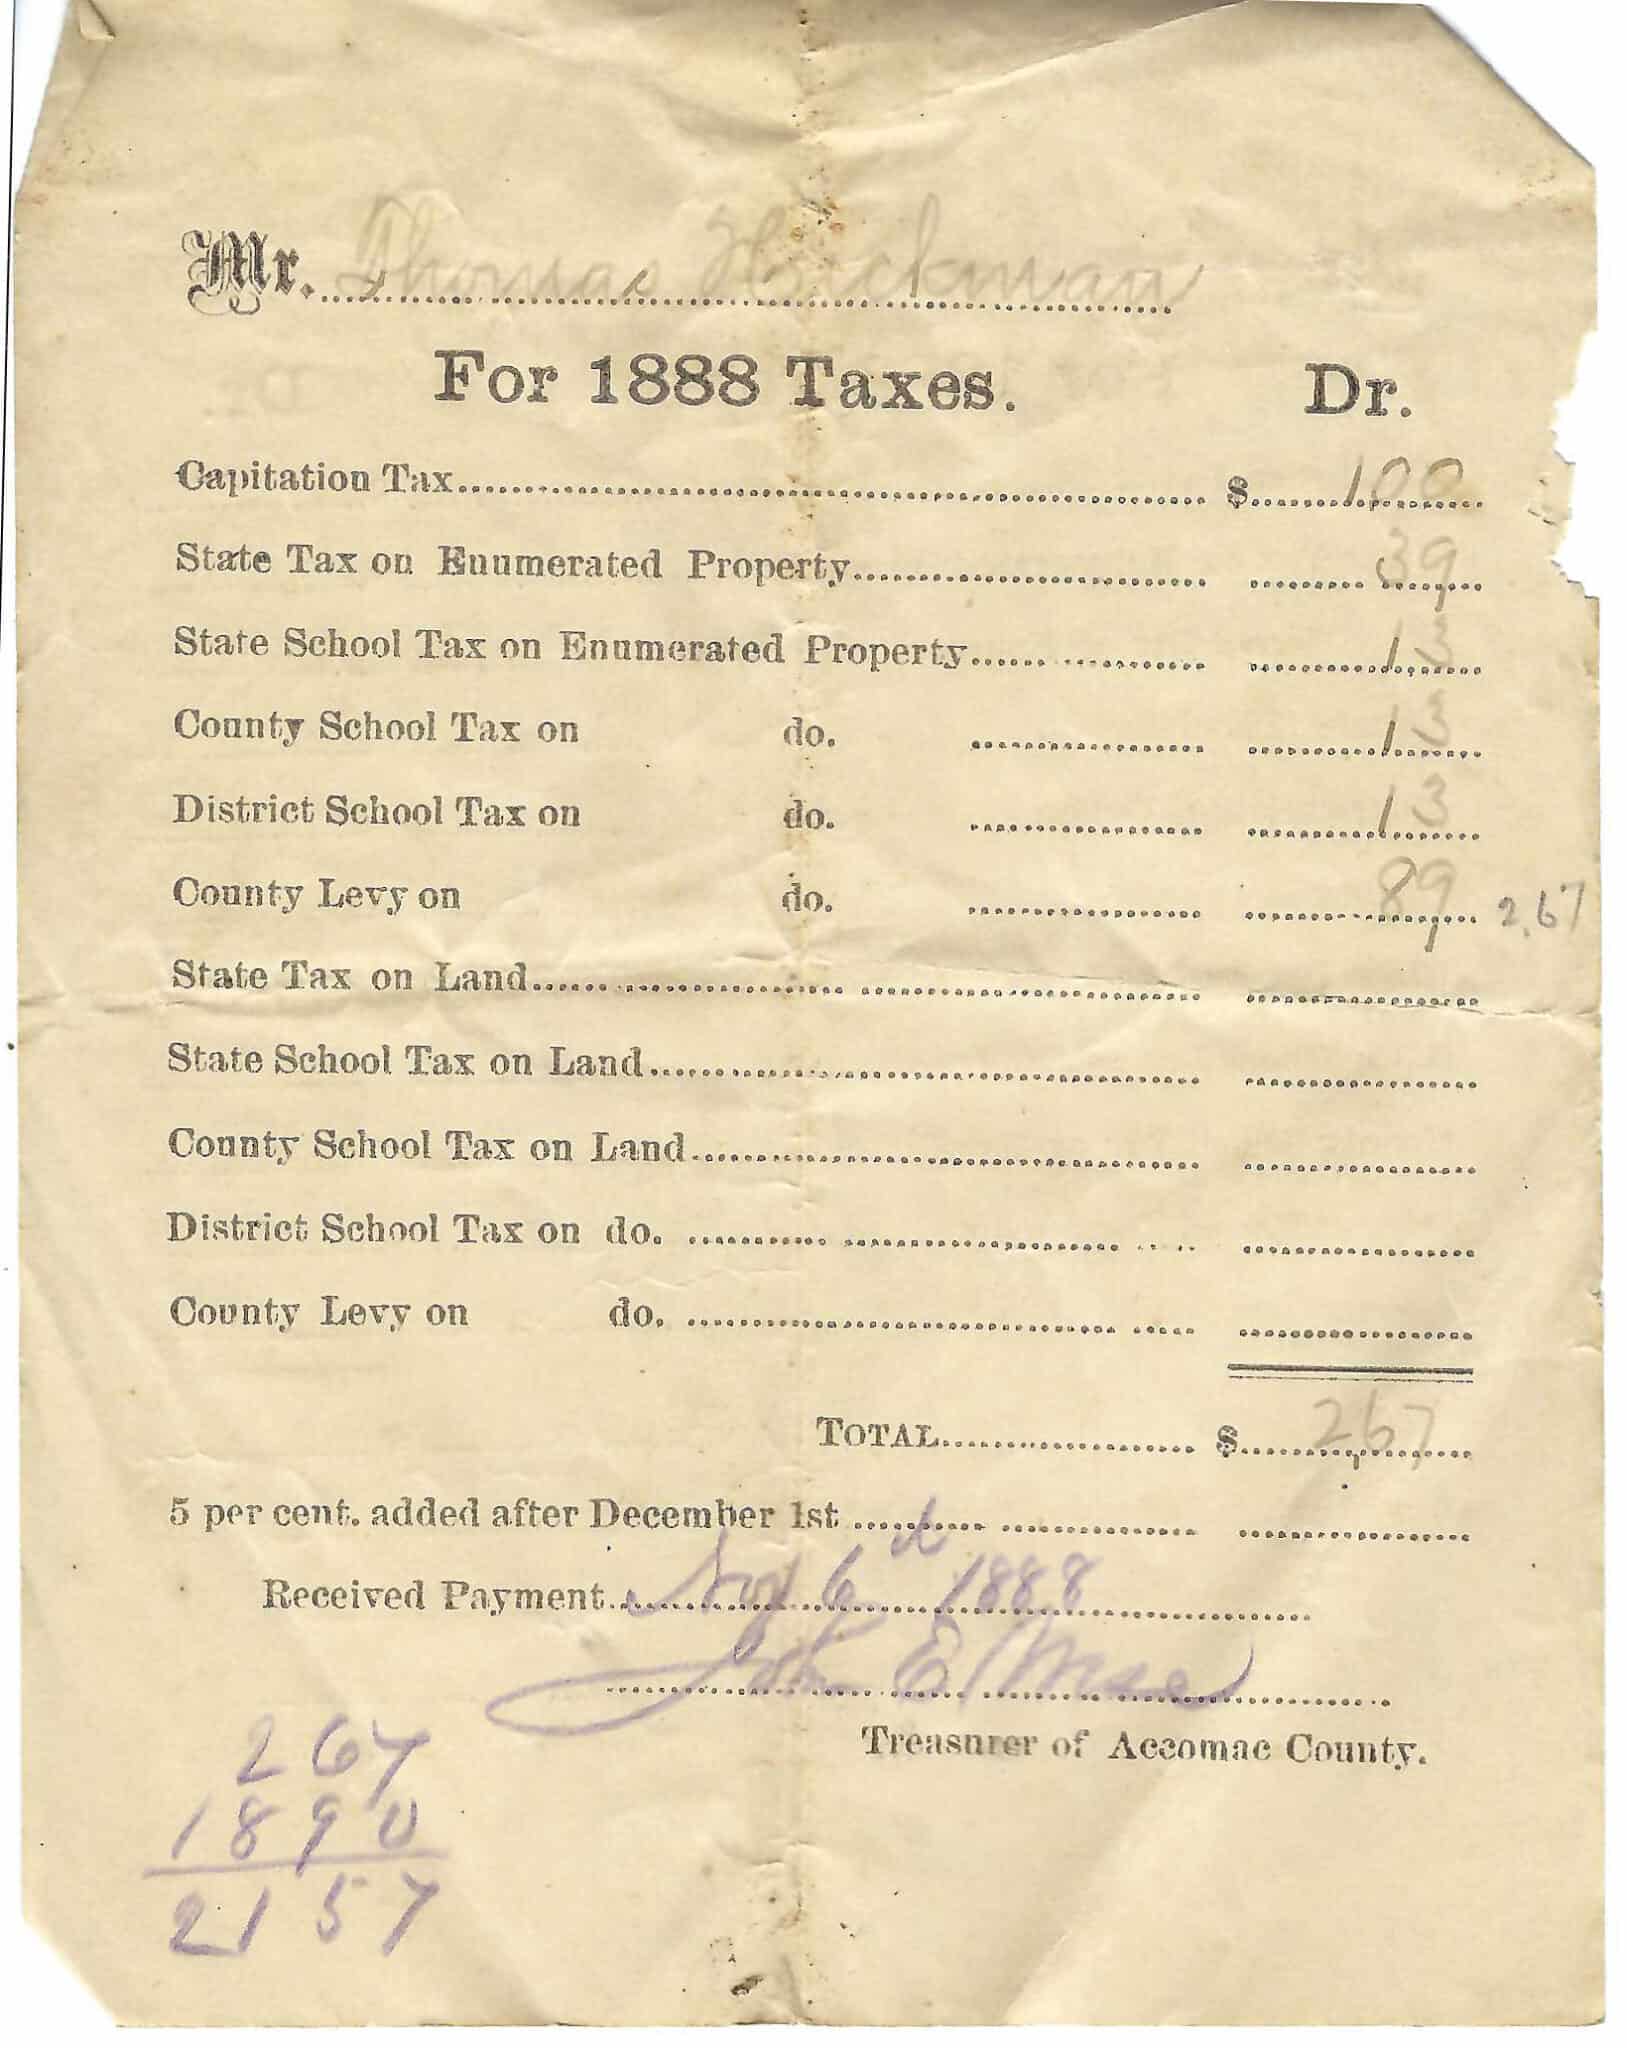 Mr. Thomas Hickman
For 1888 Taxes. Dr.
Capitation Tax $ 100
State Tax on Enumerated Property 39
State School Tax on Enumerated Property 13
County School Tax on do. 13
District School Tax on do. 13
County Levy on do. 89 2,67
State Tax on Land
State School Tax on Land
County School Tax on Land
District School Tax on do.
County Levy on do.
TOTAL $ 2,67
5 per cent. added after December 1st
Received Payment Nov 6th 1888
John E
Treasurer of Accomac County.
267
1890
2157